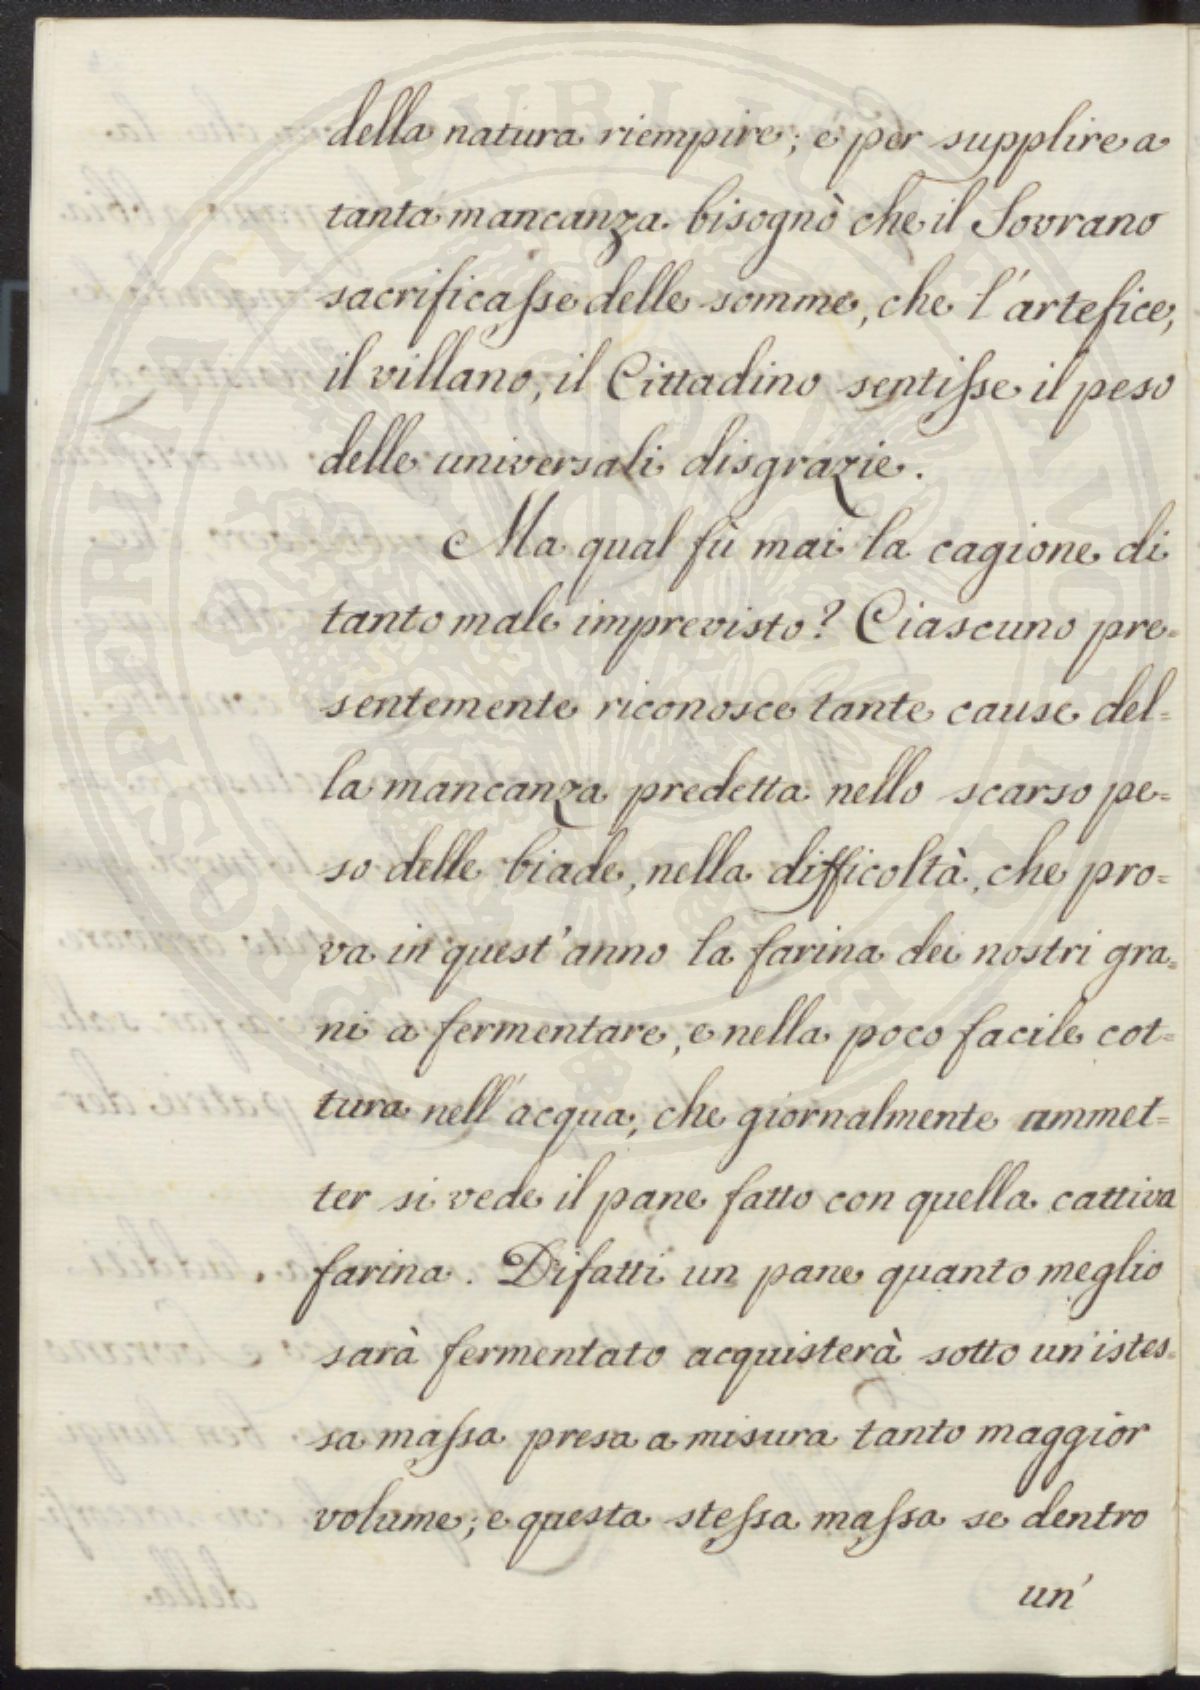 della natura riempire; e per supplire a
tanta mancanza bisognò che il Sovrano
sacrificasse delle somme, che l'artefice,
il villano, il Cittadino sentisse il peso
delle universali disgrazie.
Ma qual fù mai la cagione di
tanto male imprevisto? Ciascuno pre=
sentemente riconosce tante cause del=
la mancanza predetta nello scarso pe=
so delle biade, nella difficoltà, che pro=
va in quest'anno la farina dei nostri gra=
ni a fermentare, e nella poco facile cot=
tura nell'acqua, che giornalmente ammet=
ter si vede il pane fatto con quella cattiva
farina. Difatti un pane quanto meglio
sarà fermentato acquisterà sotto un'istes=
sa massa presa a misura tanto maggior
volume; e questa stessa massa se dentro
un'